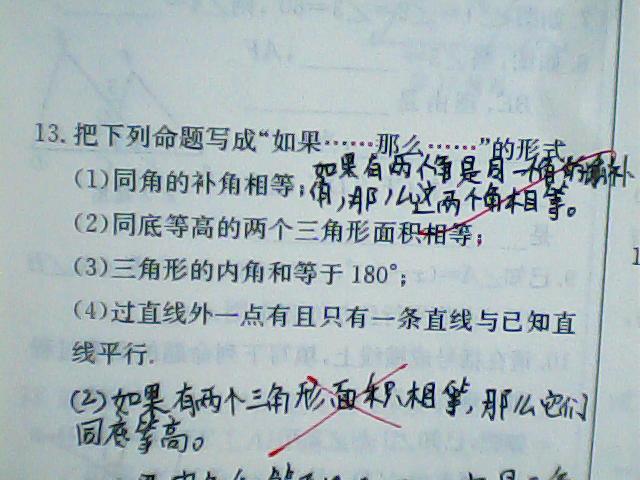 13. 把下列命题写成“如果……那么……”的形式
(1)同角的补角相等;
如果有两个角是同一角的补
角,那么这两个角相等。
(2)同底等高的两个三角形面积相等;
(3)三角形的内角和等于180°;
(4)过直线外一点有且只有一条直线与已知直
线平行.
(2)如果有两个三角形面积相等,那么它们
同底等高。